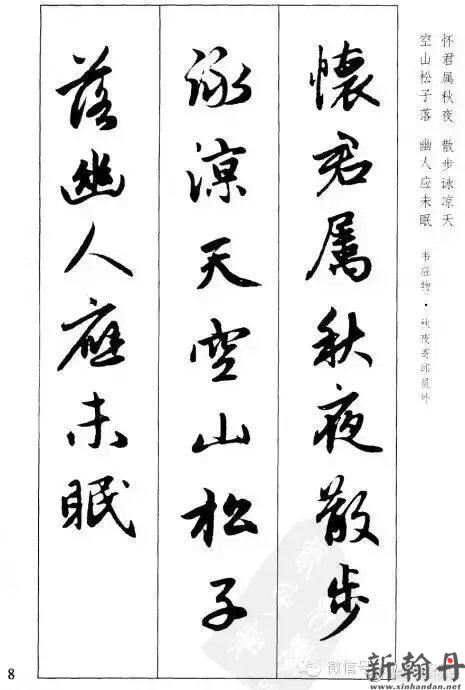 怀君属秋夜 散步咏凉天
空山松子落 幽人应未眠
韦应物·秋夜寄邱员外
懷君屬秋夜散步
詠涼天空山松子
落幽人應未眠
8
微信号
新翰丹
www.xinhandan.net